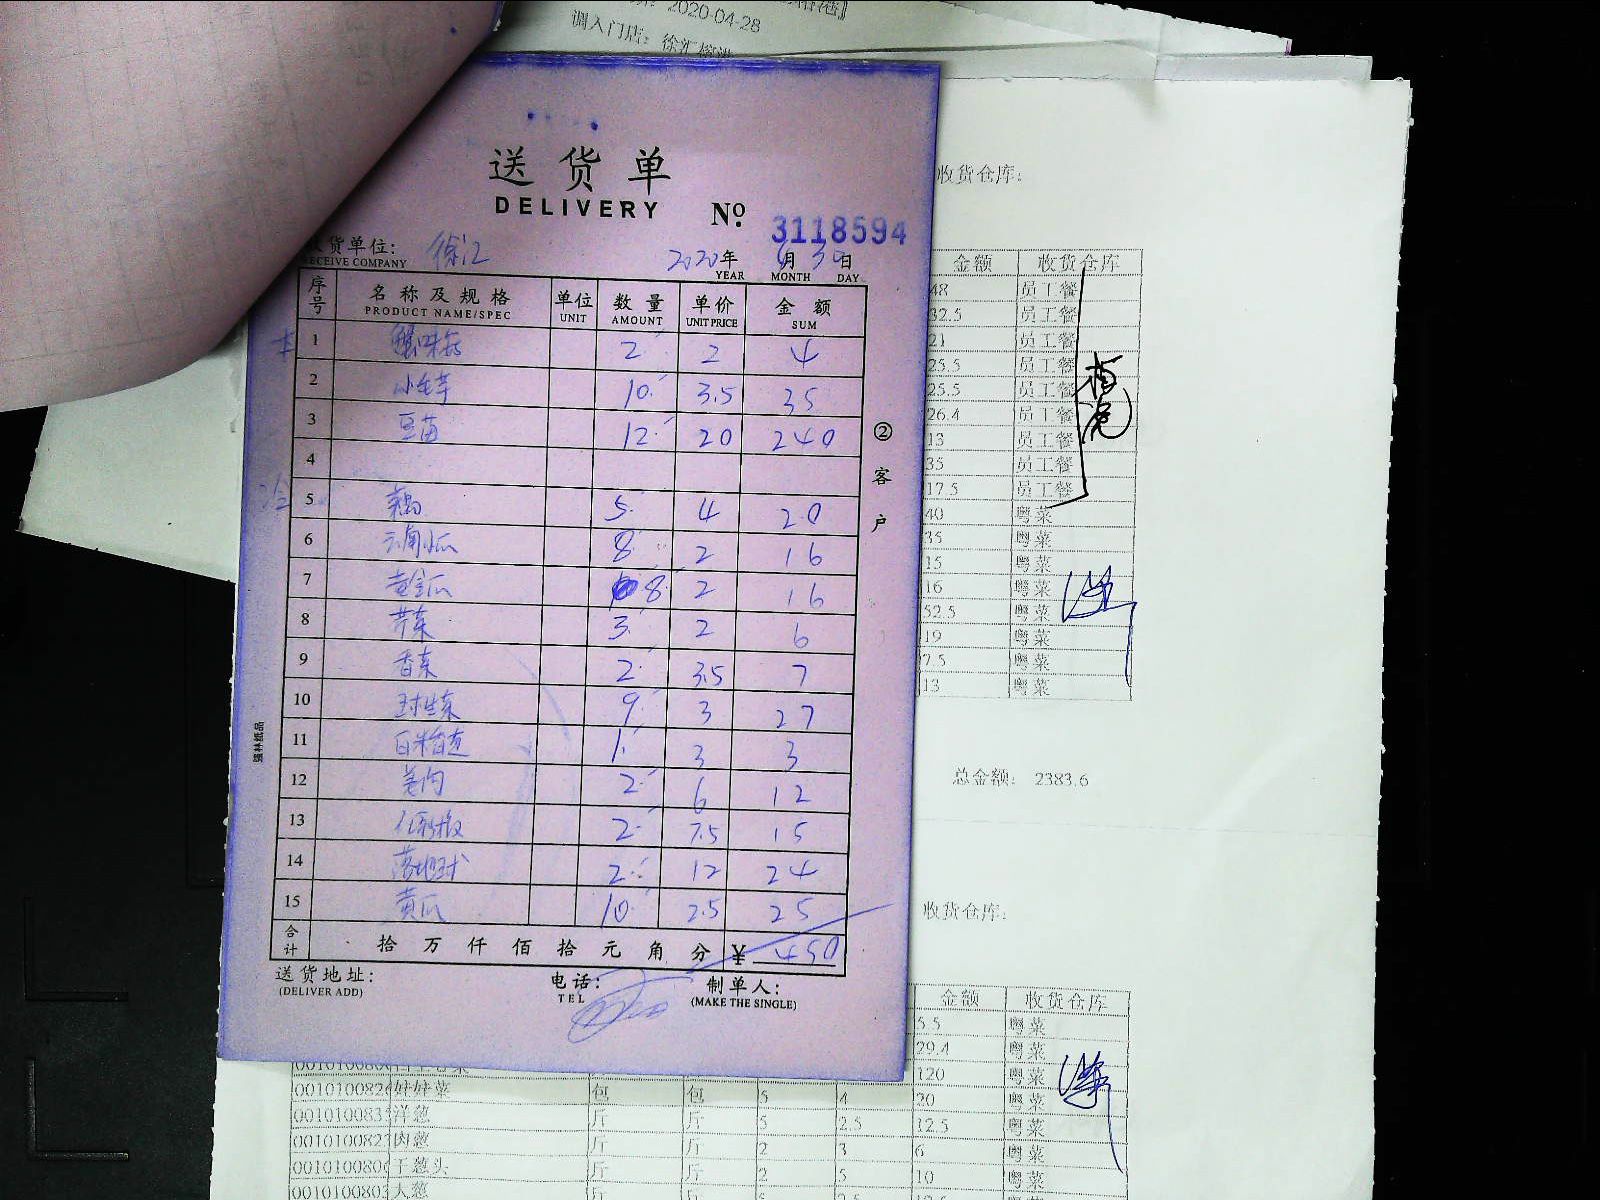 2020-04-28
调入门店：徐汇
送货单
DELIVERY
No. 3118594
收货单位： 徐汇
RECEIVE COMPANY
2020年 月30日
YEAR MONTH DAY
序号 名称及规格 单位 数量 单价 金额
PRODUCT NAME/SPEC UNIT AMOUNT UNIT PRICE SUM
1 蟹味菇 2 2 4
2 小毛芋 10 3.5 35
3 豆苗 12 20 240
4
5 5 4 20
6 云南小瓜 8 2 16
7 黄金瓜 8 2 16
8 芹菜 3 2 6
9 香菜 2 3.5 7
10 球生菜 9 3 27
11 白米苋 1 3 3
12 姜肉 2 6 12
13 2 7.5 15
14 落地球 2 12 24
15 黄瓜 10 2.5 25
合计 拾万仟佰拾元角分 ¥ 450
送货地址：
(DELIVER ADD)
电话：
TEL
制单人：
(MAKE THE SINGLE)
②客户
强林纸品
收货仓库：
金额 收货仓库
48 员工餐
32.5 员工餐
21 员工餐
25.5 员工餐
25.5 员工餐
26.4 员工餐
13 员工餐
35 员工餐
17.5 员工餐
40 粤菜
35 粤菜
15 粤菜
16 粤菜
52.5 粤菜
19 粤菜
7.5 粤菜
13 粤菜
总金额： 2383.6
收货仓库：
金额 收货仓库
5.5 粤菜
29.4 粤菜
120 粤菜
娃娃菜 包 包 5 4 20 粤菜
洋葱 斤 斤 5 2.5 12.5 粤菜
肉葱 斤 斤 2 3 6 粤菜
干葱头 斤 斤 2 5 10 粤菜
大葱